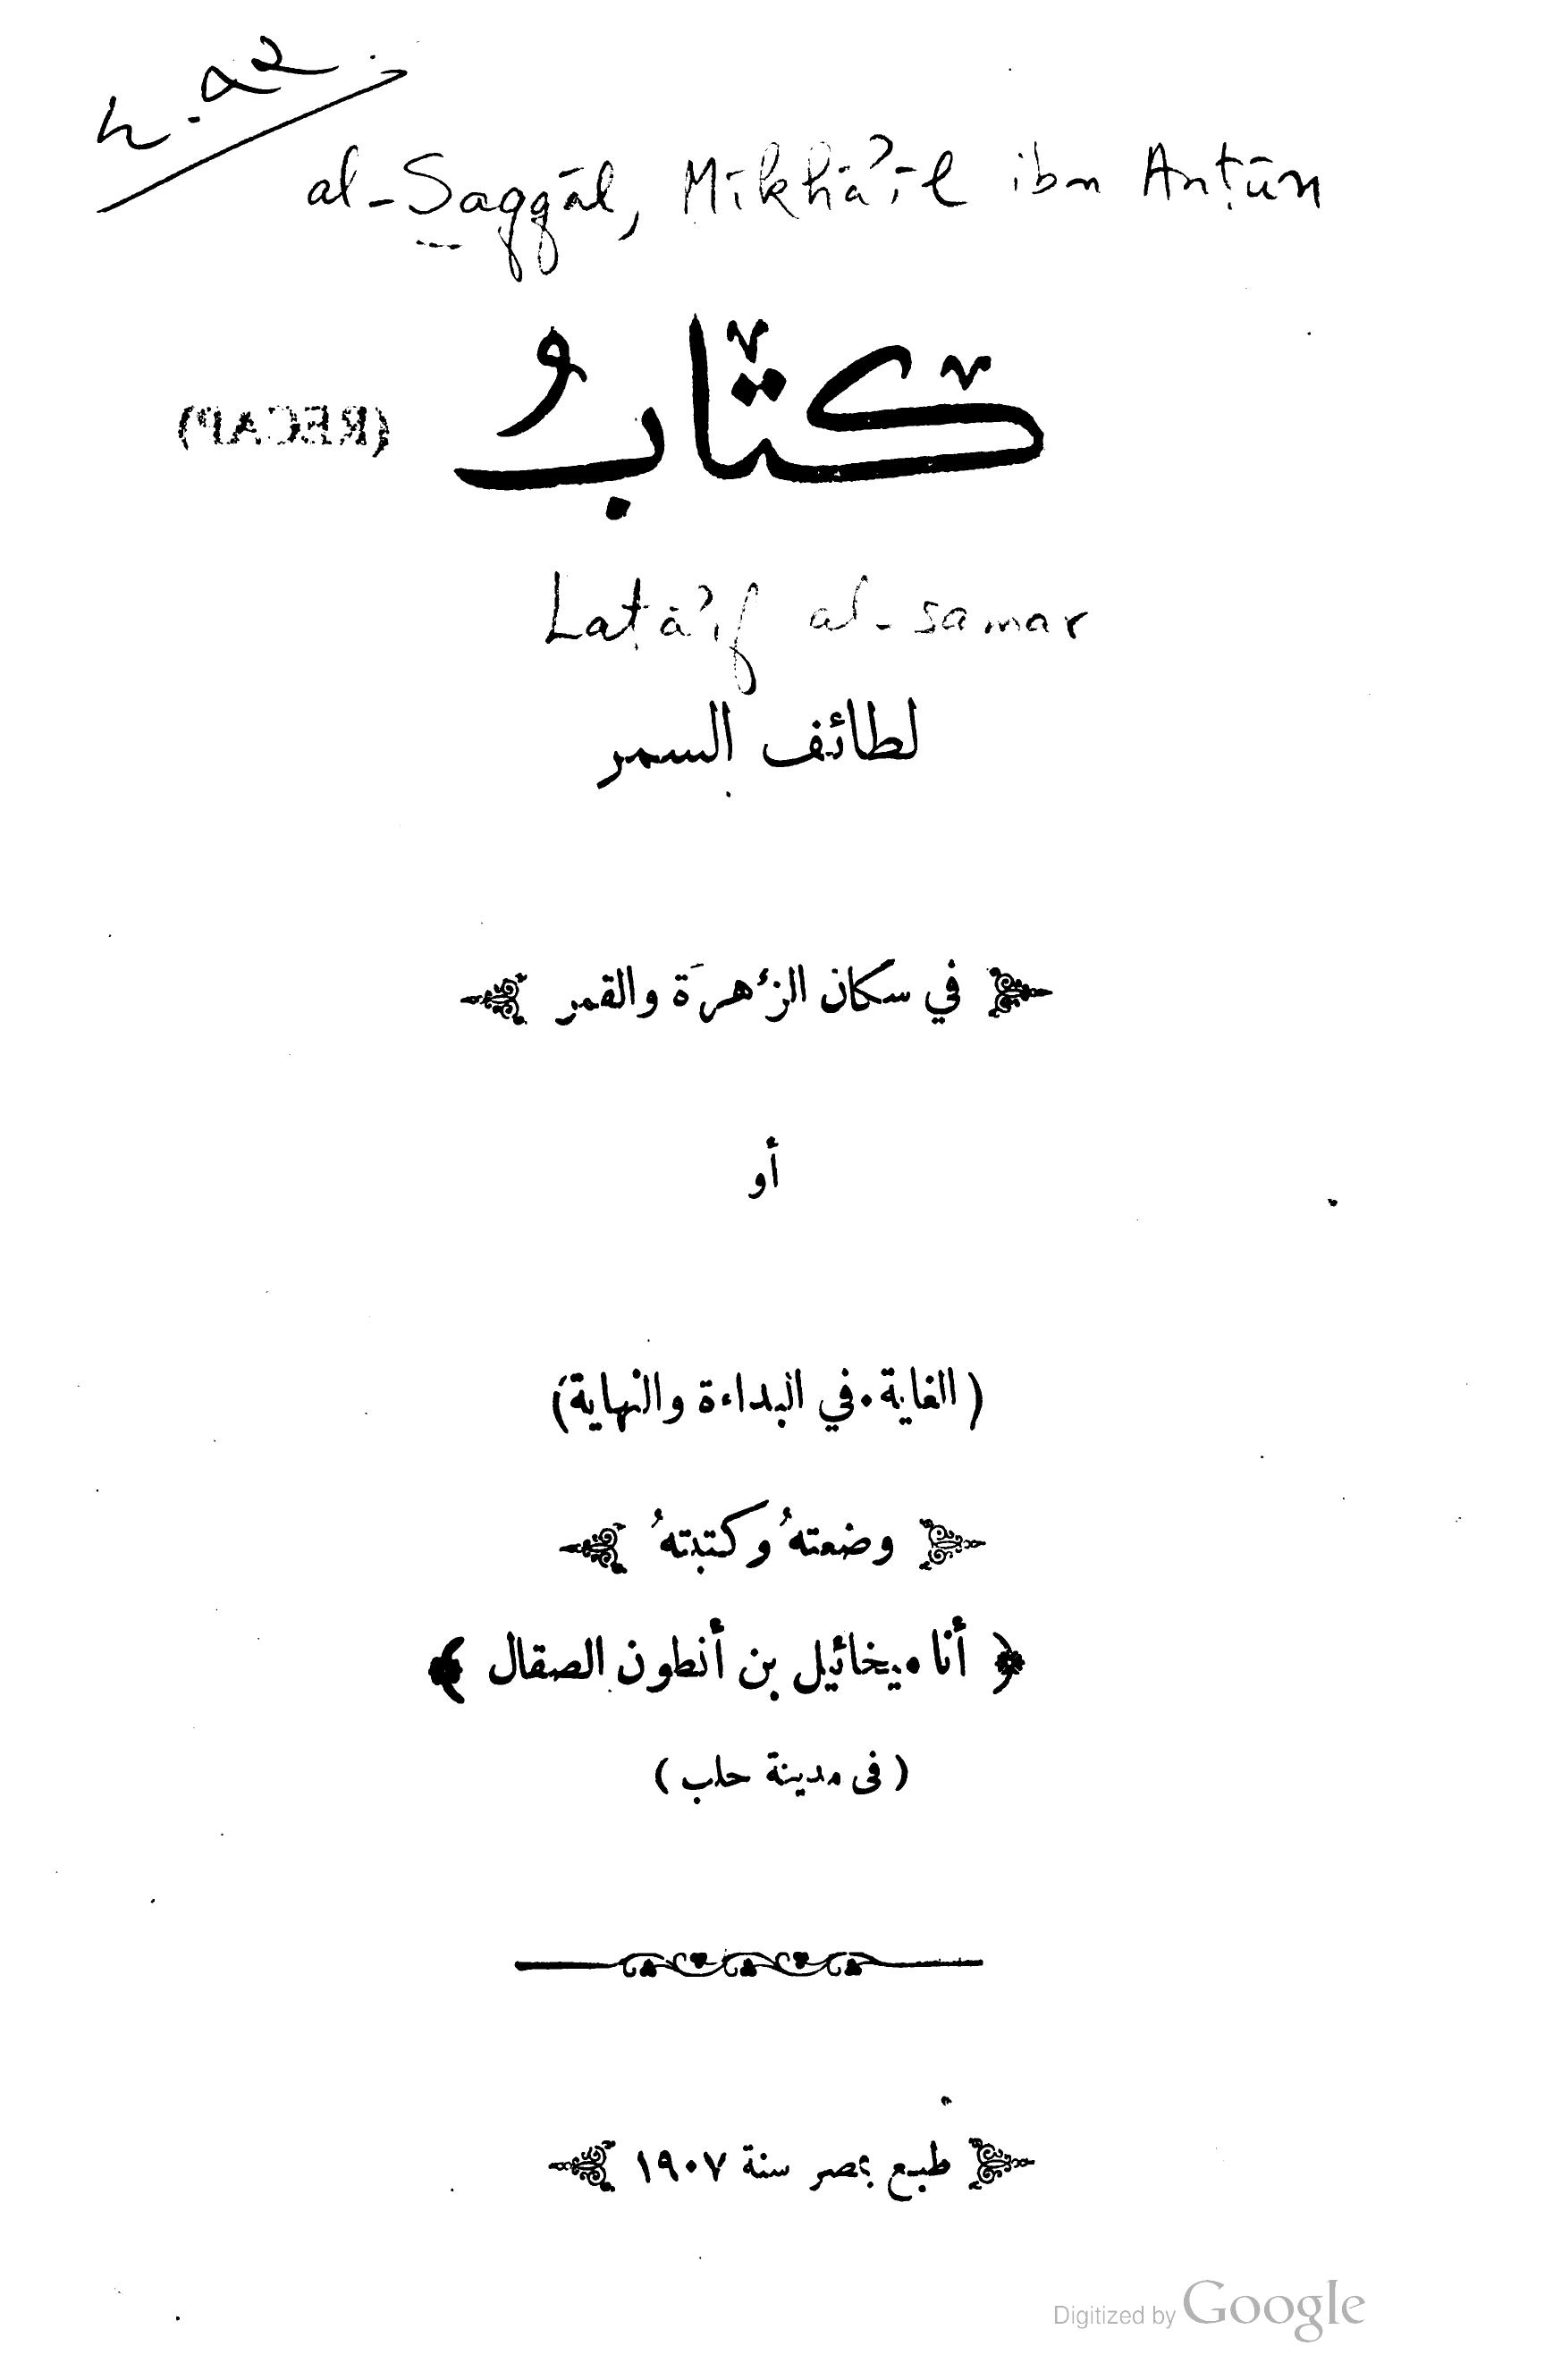 n.a2
al-Saqqāl, Mīkhā'īl ibn Anṭūn
كتابُ
(RECAP)
Laṭā'if al-samar
لطائف السمر
في سكان الزُهرَة والقمر
أو
(الغاية في البداءة والنهاية)
وضعتهُ وكتبتهُ
أنا ميخائيل بن أنطون الصقال
(فى مدينة حلب)
طبع بمصر سنة ١٩٠٧
Digitized by Google